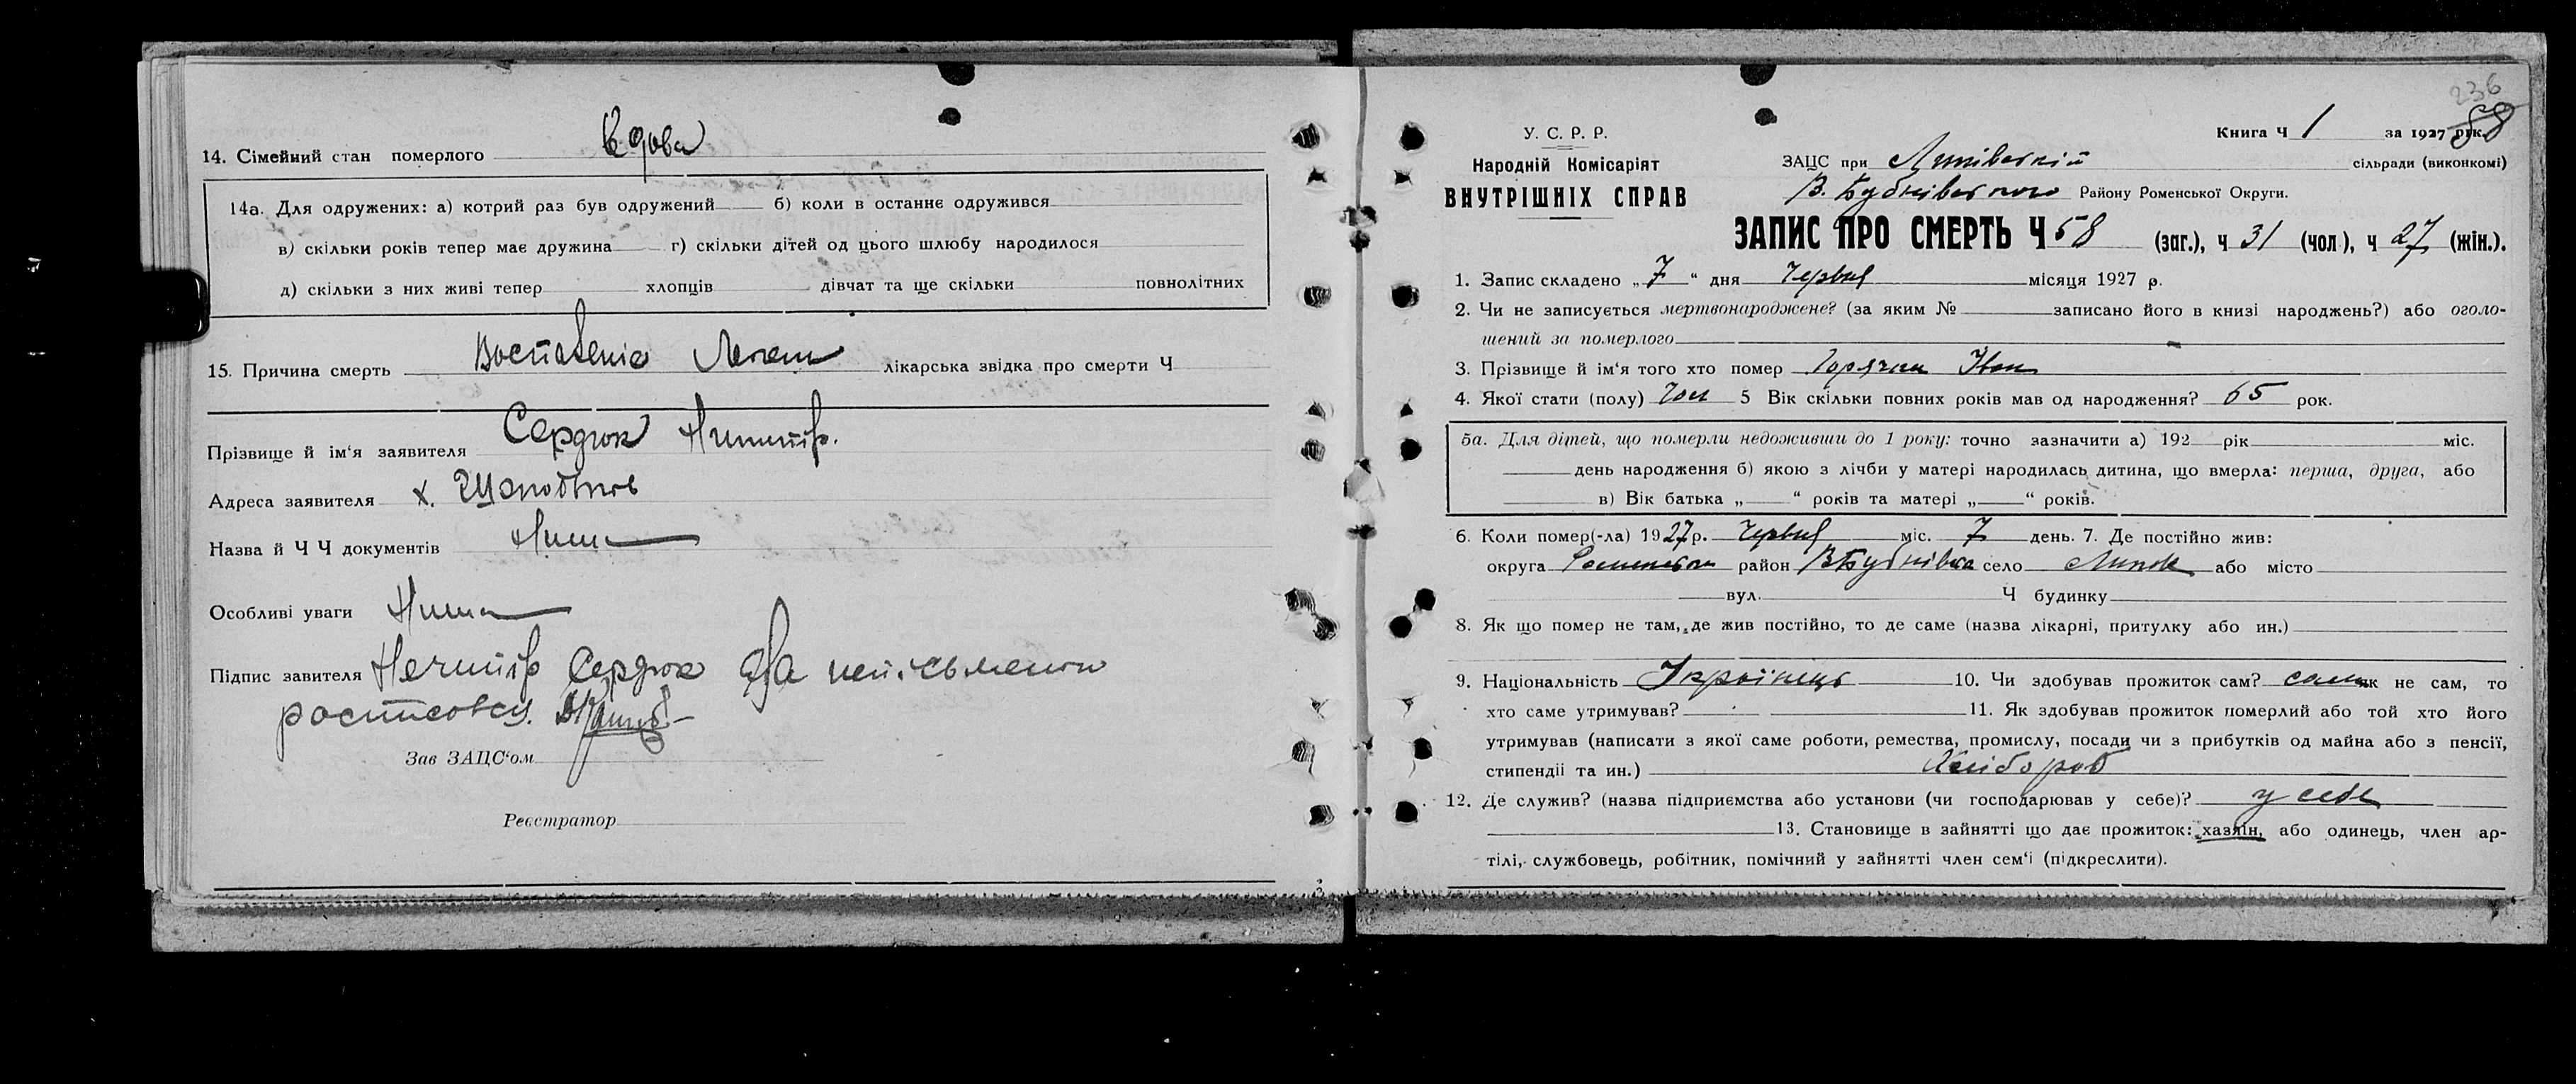 14. Сімейний стан померлого вдова
14а. Для одружених: а) котрий раз був одружений б) коли в останнє одружився
в) скільки років тепер має дружина г) скільки дітей од цього шлюбу народилося
д) скільки з них живі тепер хлопців дівчат та ще скільки повнолітних
15. Причина смерть Воспаленіє лікарська звідка про смерти Ч
Прізвище й ім'я заявителя Сердюк
Адреса заявителя х.
Назва й Ч Ч документів Нима
Особливі уваги Нима
Підпис завителя Сердюк
Зав ЗАЦС'ом
Реєстратор
236
У. С. Р. Р.
Народній Комісаріят
ВНУТРІШНІХ СПРАВ
Книга Ч 1 за 1927 рік. 58
ЗАЦС при Липівській сільради (виконкомі)
В. Бубнівського Району Роменської Округи.
ЗАПИС ПРО СМЕРТЬ Ч 58 (заг.), ч 31 (чол), ч 27 (жін.).
1. Запис складено „ 7 “ дня Червня місяця 1927 р.
2. Чи не записується мертвонароджене? (за яким № записано його в книзі народжень?) або оголо-
шений за померлого
3. Прізвище й ім'я того хто помер Іван
4. Якої стати (полу) Чол 5 Вік скільки повних років мав од народження? 65 рок.
5а. Для дітей, що померли недоживши до 1 року: точно зазначити а) 192 рік міс.
день народження б) якою з лічби у матері народилась дитина, що вмерла: перша, друга, або
в) Вік батька „ “ років та матері „ “ років.
6. Коли помер(-ла) 1927 р. Червня міс. 7 день. 7. Де постійно жив:
округа Роменська район ВБубнівка село Липове або місто
вул. Ч будинку
8. Як що помер не там, де жив постійно, то де саме (назва лікарні, притулку або ин.)
9. Національність Українець 10. Чи здобував прожиток сам? сам як не сам, то
хто саме утримував? 11. Як здобував прожиток померлий або той хто його
утримував (написати з якої саме роботи, ремества, промислу, посади чи з прибутків од майна або з пенсії,
стипендії та ин.) Хлібороб
12. Де служив? (назва підприємства або установи (чи господарював у себе)? у себе
13. Становище в зайнятті що дає прожиток: хазяїн, або одинець, член ар-
тілі, службовець, робітник, помічний у зайнятті член сем'і (підкреслити).